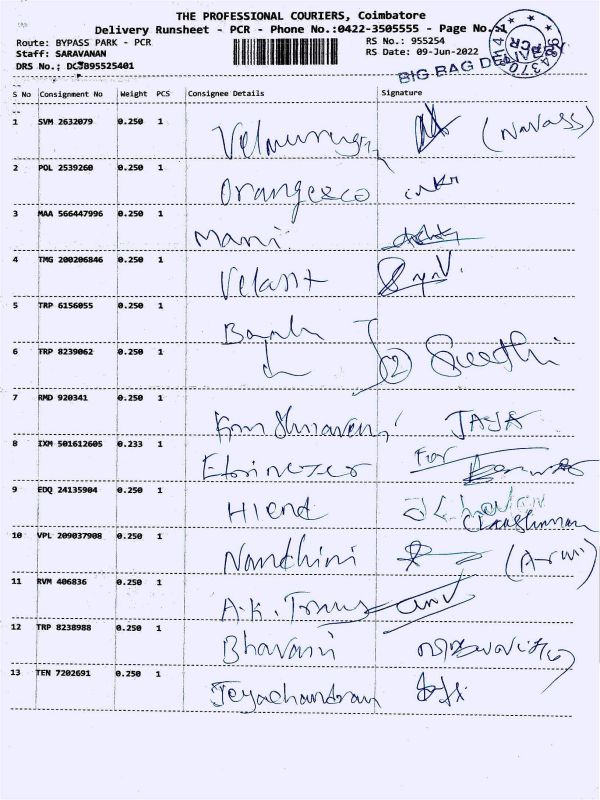 THE PROFESSIONAL COURIERS, Coimbatore
Delivery Runsheet - PCR - Phone No.:0422-3505555 - Page No.
Route: BYPASS PARK - PCR RS No.: 955254
Staff: SARAVANAN RS Date: 09-Jun-2022
DRS No.; DCJB95525401
BIG BAG
S No Consignment No Weight PCS Consignee Details Signature
1 SVM 2632079 0.250 1 Velmurugan (Navass)
2 POL 2539260 0.250 1 Orangesco
3 MAA 566447996 0.250 1 Mani
4 TMG 200206846 0.250 1 Velast
5 TRP 6156055 0.250 1
6 TRP 8239062 0.250 1 (2) Sweethi
7 RMD 920341 0.250 1 JAYA
8 IXM 501612605 0.233 1 For
9 EDQ 24135904 0.250 1 Hiend
10 VPL 209037908 0.250 1 Nandhini
11 RVM 406836 0.250 1 A.K. Trans
12 TRP 8238988 0.250 1 Bhavani
13 TEN 7202691 0.250 1 Jeyachandran